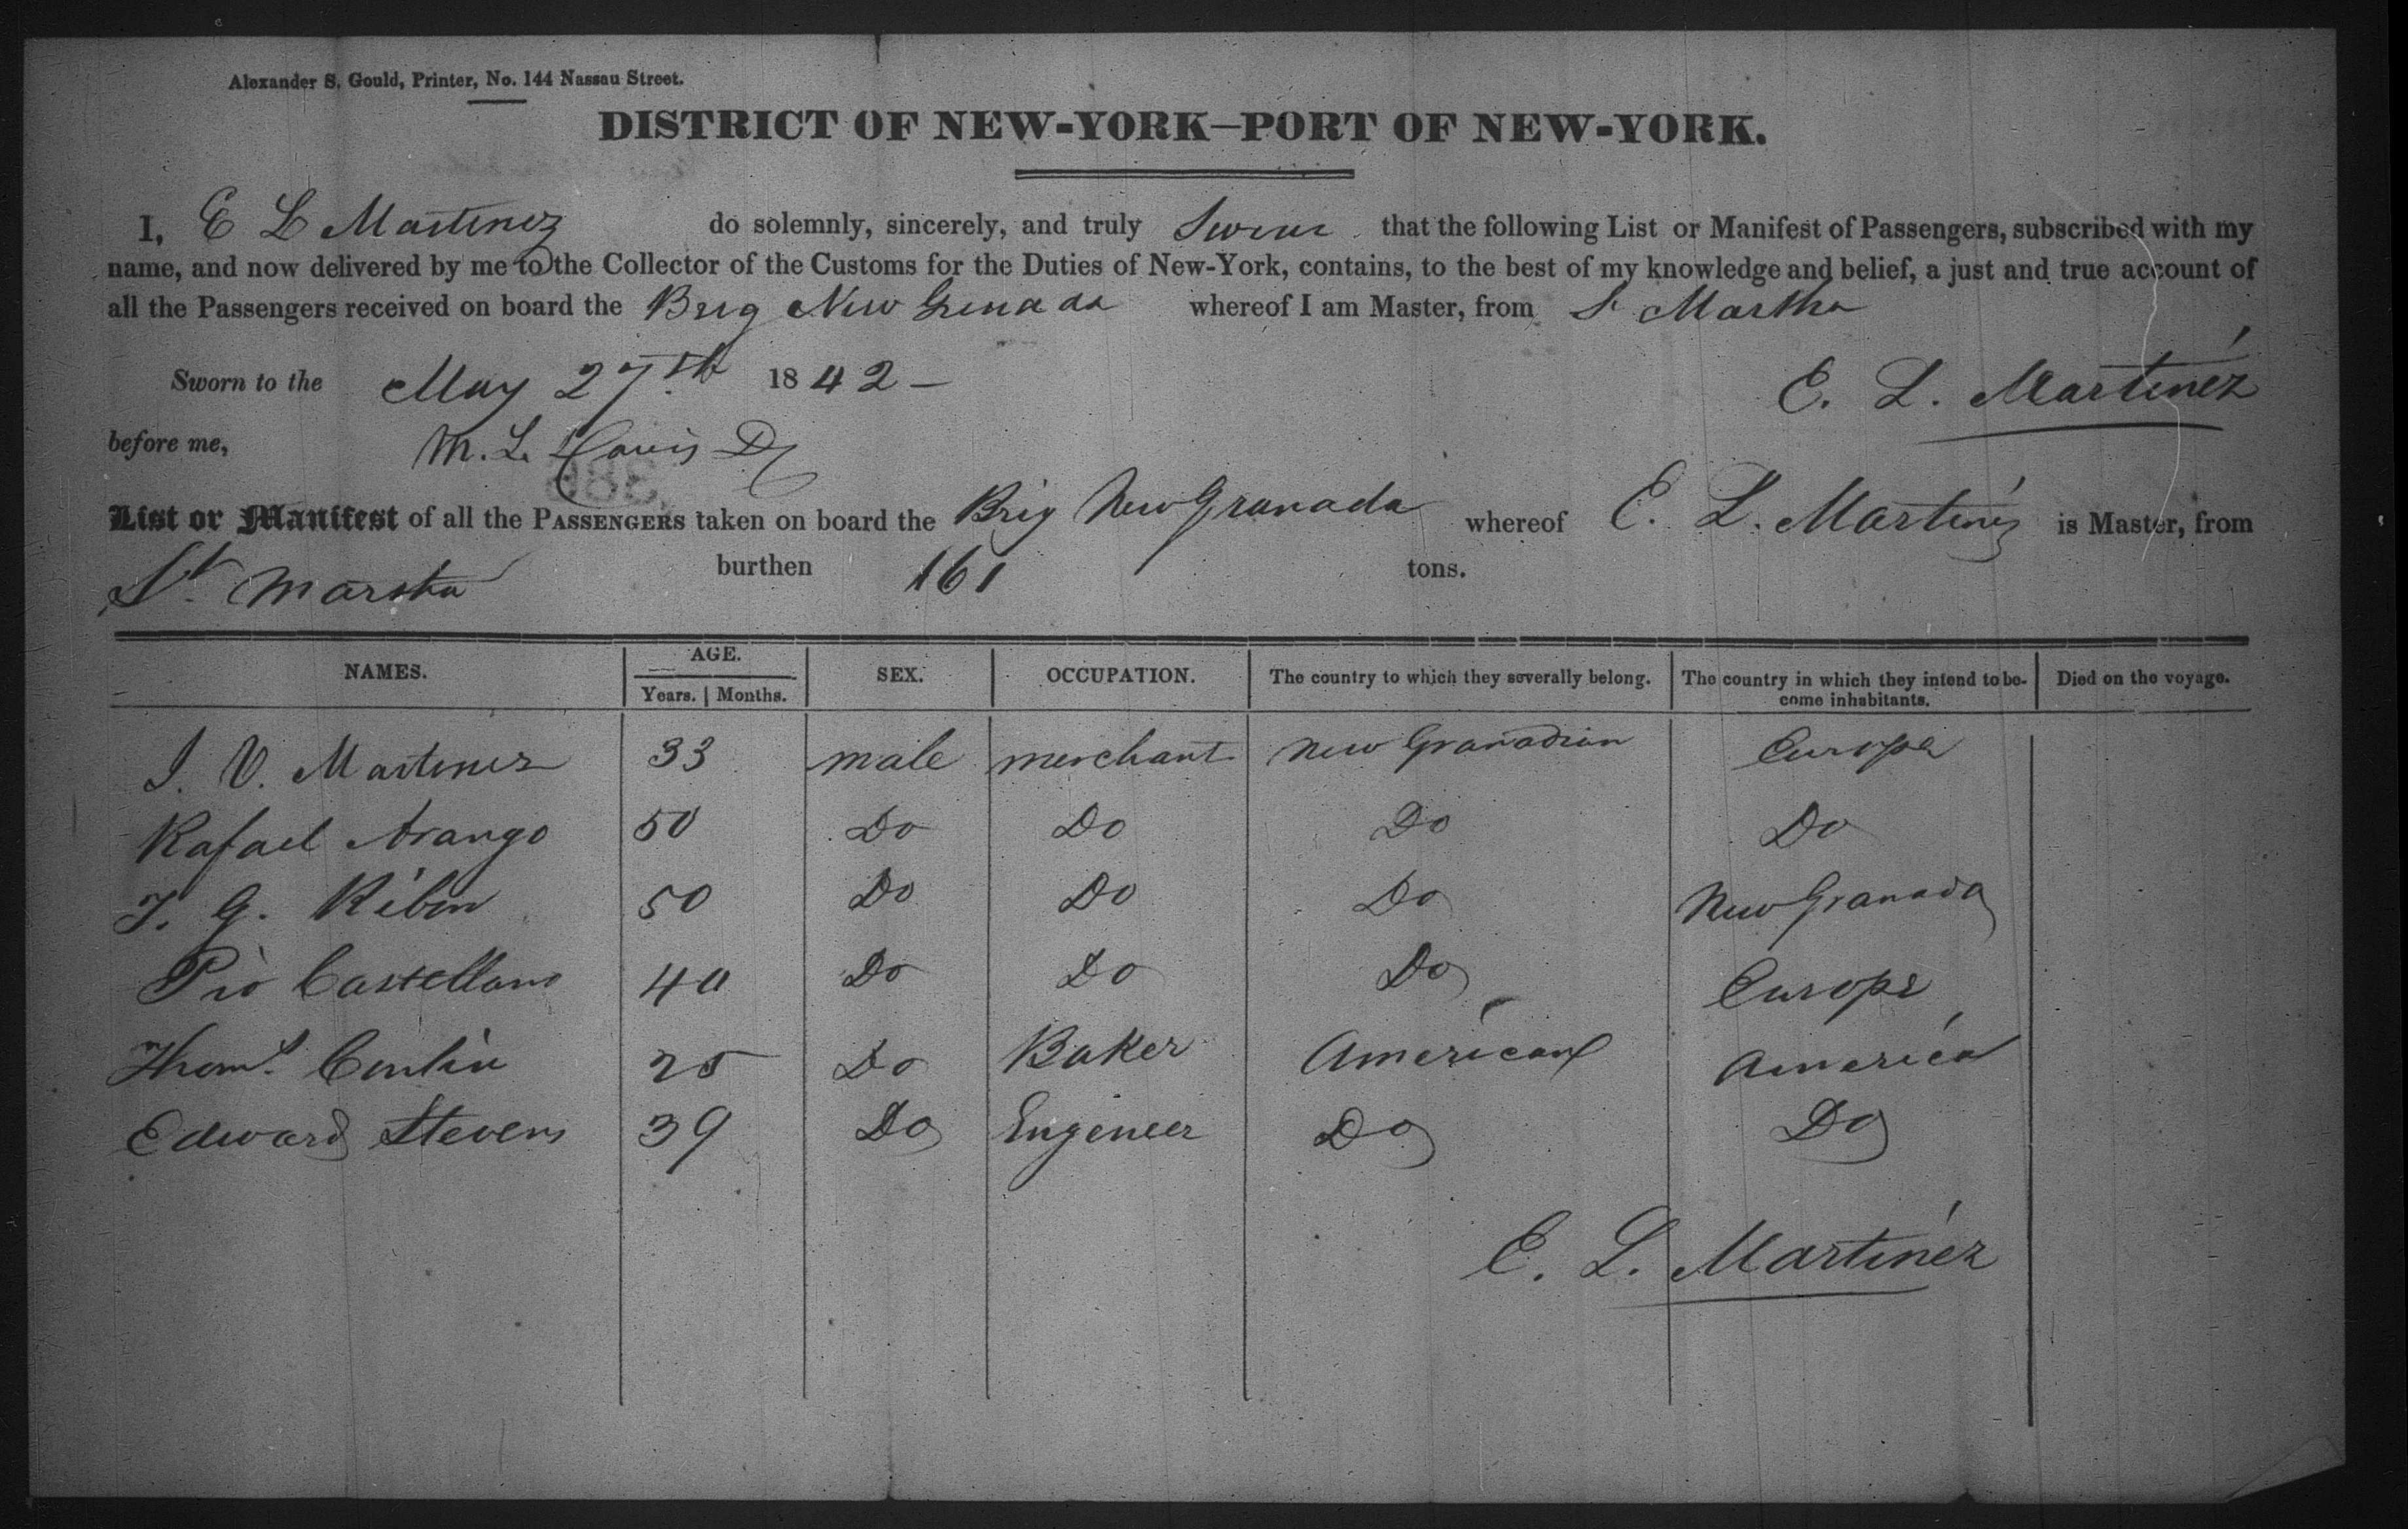 Alexander S. Gould, Printer, No. 144 Nassau Street.
DISTRICT OF NEW-YORK—PORT OF NEW-YORK.
I, E L Martinez do solemnly, sincerely, and truly Swear that the following List or Manifest of Passengers, subscribed with my
name, and now delivered by me to the Collector of the Customs for the Duties of New-York, contains, to the best of my knowledge and belief, a just and true account of
all the Passengers received on board the Brig New Grenada whereof I am Master, from St Martha
Sworn to the May 27th 1842 — E. L. Martinez
before me, M. L. Davis
List or Manifest of all the PASSENGERS taken on board the Brig New Granada whereof E. L. Martinez is Master, from
St. Martha burthen 161 tons.
NAMES. AGE. Years. Months. SEX. OCCUPATION. The country to which they severally belong. The country in which they intend to become inhabitants. Died on the voyage.
J. V. Martinez 33 male merchant New Granadian Europe
Rafael Arango 50 Do Do Do Do
T. G. Ribon 50 Do Do Do New Granada
Pio Castellano 40 Do Do Do Europe
Thoms. Conlin 25 Do Baker American America
Edward Stevens 39 Do Engeneer Do Do
E. L. Martinez